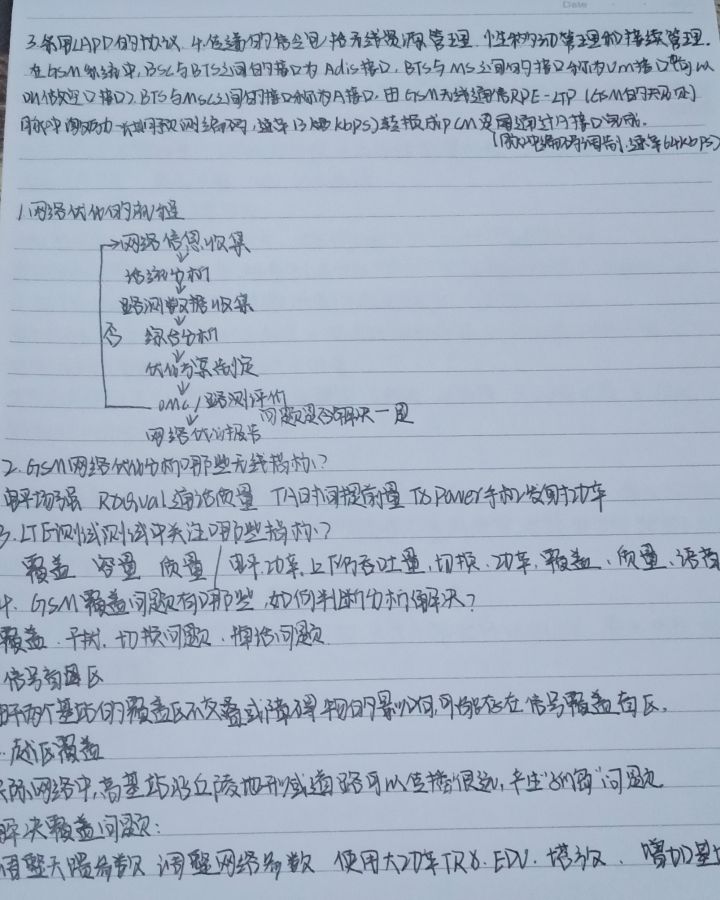 3.采用LAPD的协议 4.传递的信令包括无线资源管理、惟移动管理和接续管理.
在GSM系统中,BSC与BTS之间的接口为Adis接口,BTS与MS之间的接口称为Um接口(也可以
叫做空口接口).BTS与MSC之间的接口称为A接口,由GSM无线通信RPE-LTP(GSM的
脉冲激励 长期预测编码,速率13kbps)转换成PCM是通过接口完成.
(脉冲编码调制,速率64kbps)
1.网络优化的流程
网络信息收集
话统分析
路测数据收集
否 综合分析
优化方案制定
OMC/路测评估
问题是否解决一是
网络优化报告
2.GSM网络优化分析哪些无线指标?
电平场强 Rxqual通话质量 TA时间提前量 TxPower手机发射功率
3.LTE测试测试中关注哪些指标?
覆盖 容量 质量/电平,功率,上下行吞吐量,切换、功率,覆盖、质量、语音
4.GSM覆盖问题有哪些,如何判断分析解决?
覆盖、干扰、切换问题、掉话问题
信号盲区
两个基站的覆盖区不交叠或障碍物的影响,可能存在信号覆盖盲区.
越区覆盖
实际网络中,高基站沿丘陵地形或道路可以传播很远,产生"孤岛"问题
解决覆盖问题:
调整天馈参数 调整网络参数 使用大功率TRX、EDU、塔放、增加基